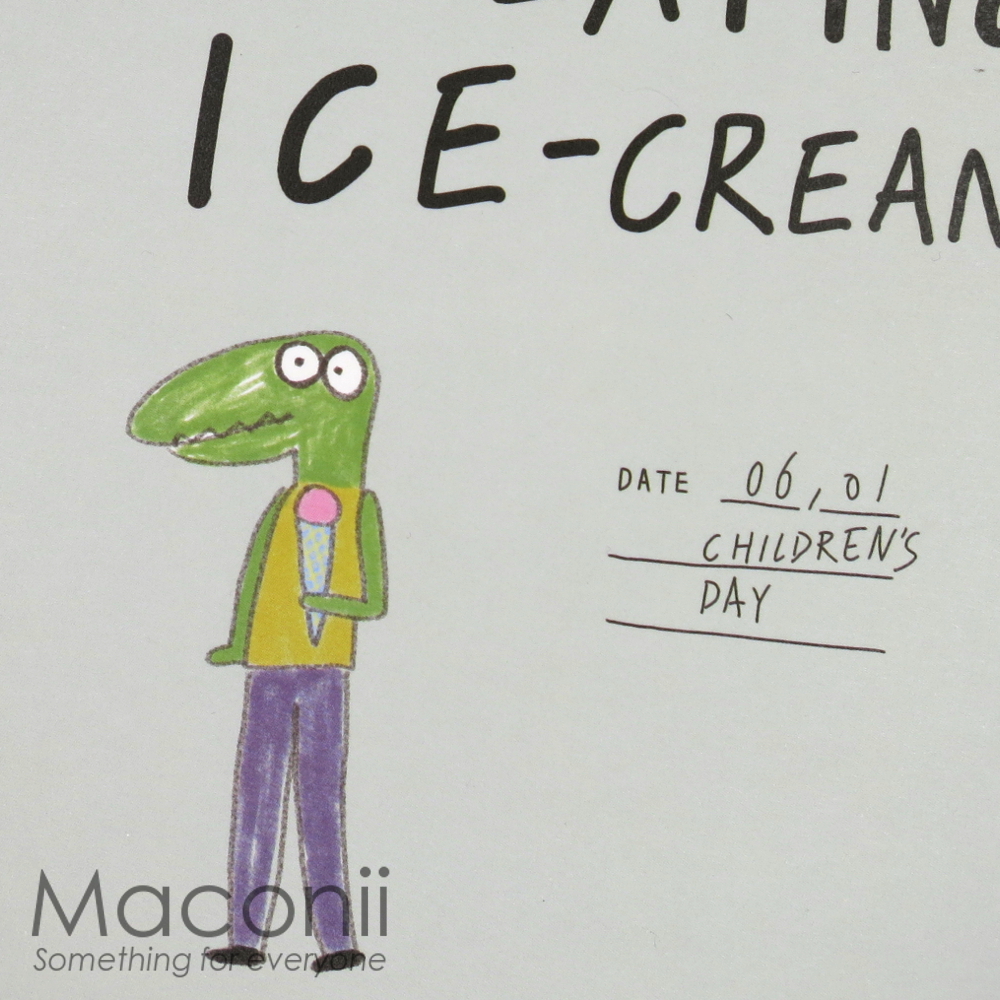 EATING
ICE-CREAM
DATE 06,01
CHILDREN'S
DAY
Maconii
Something for everyone